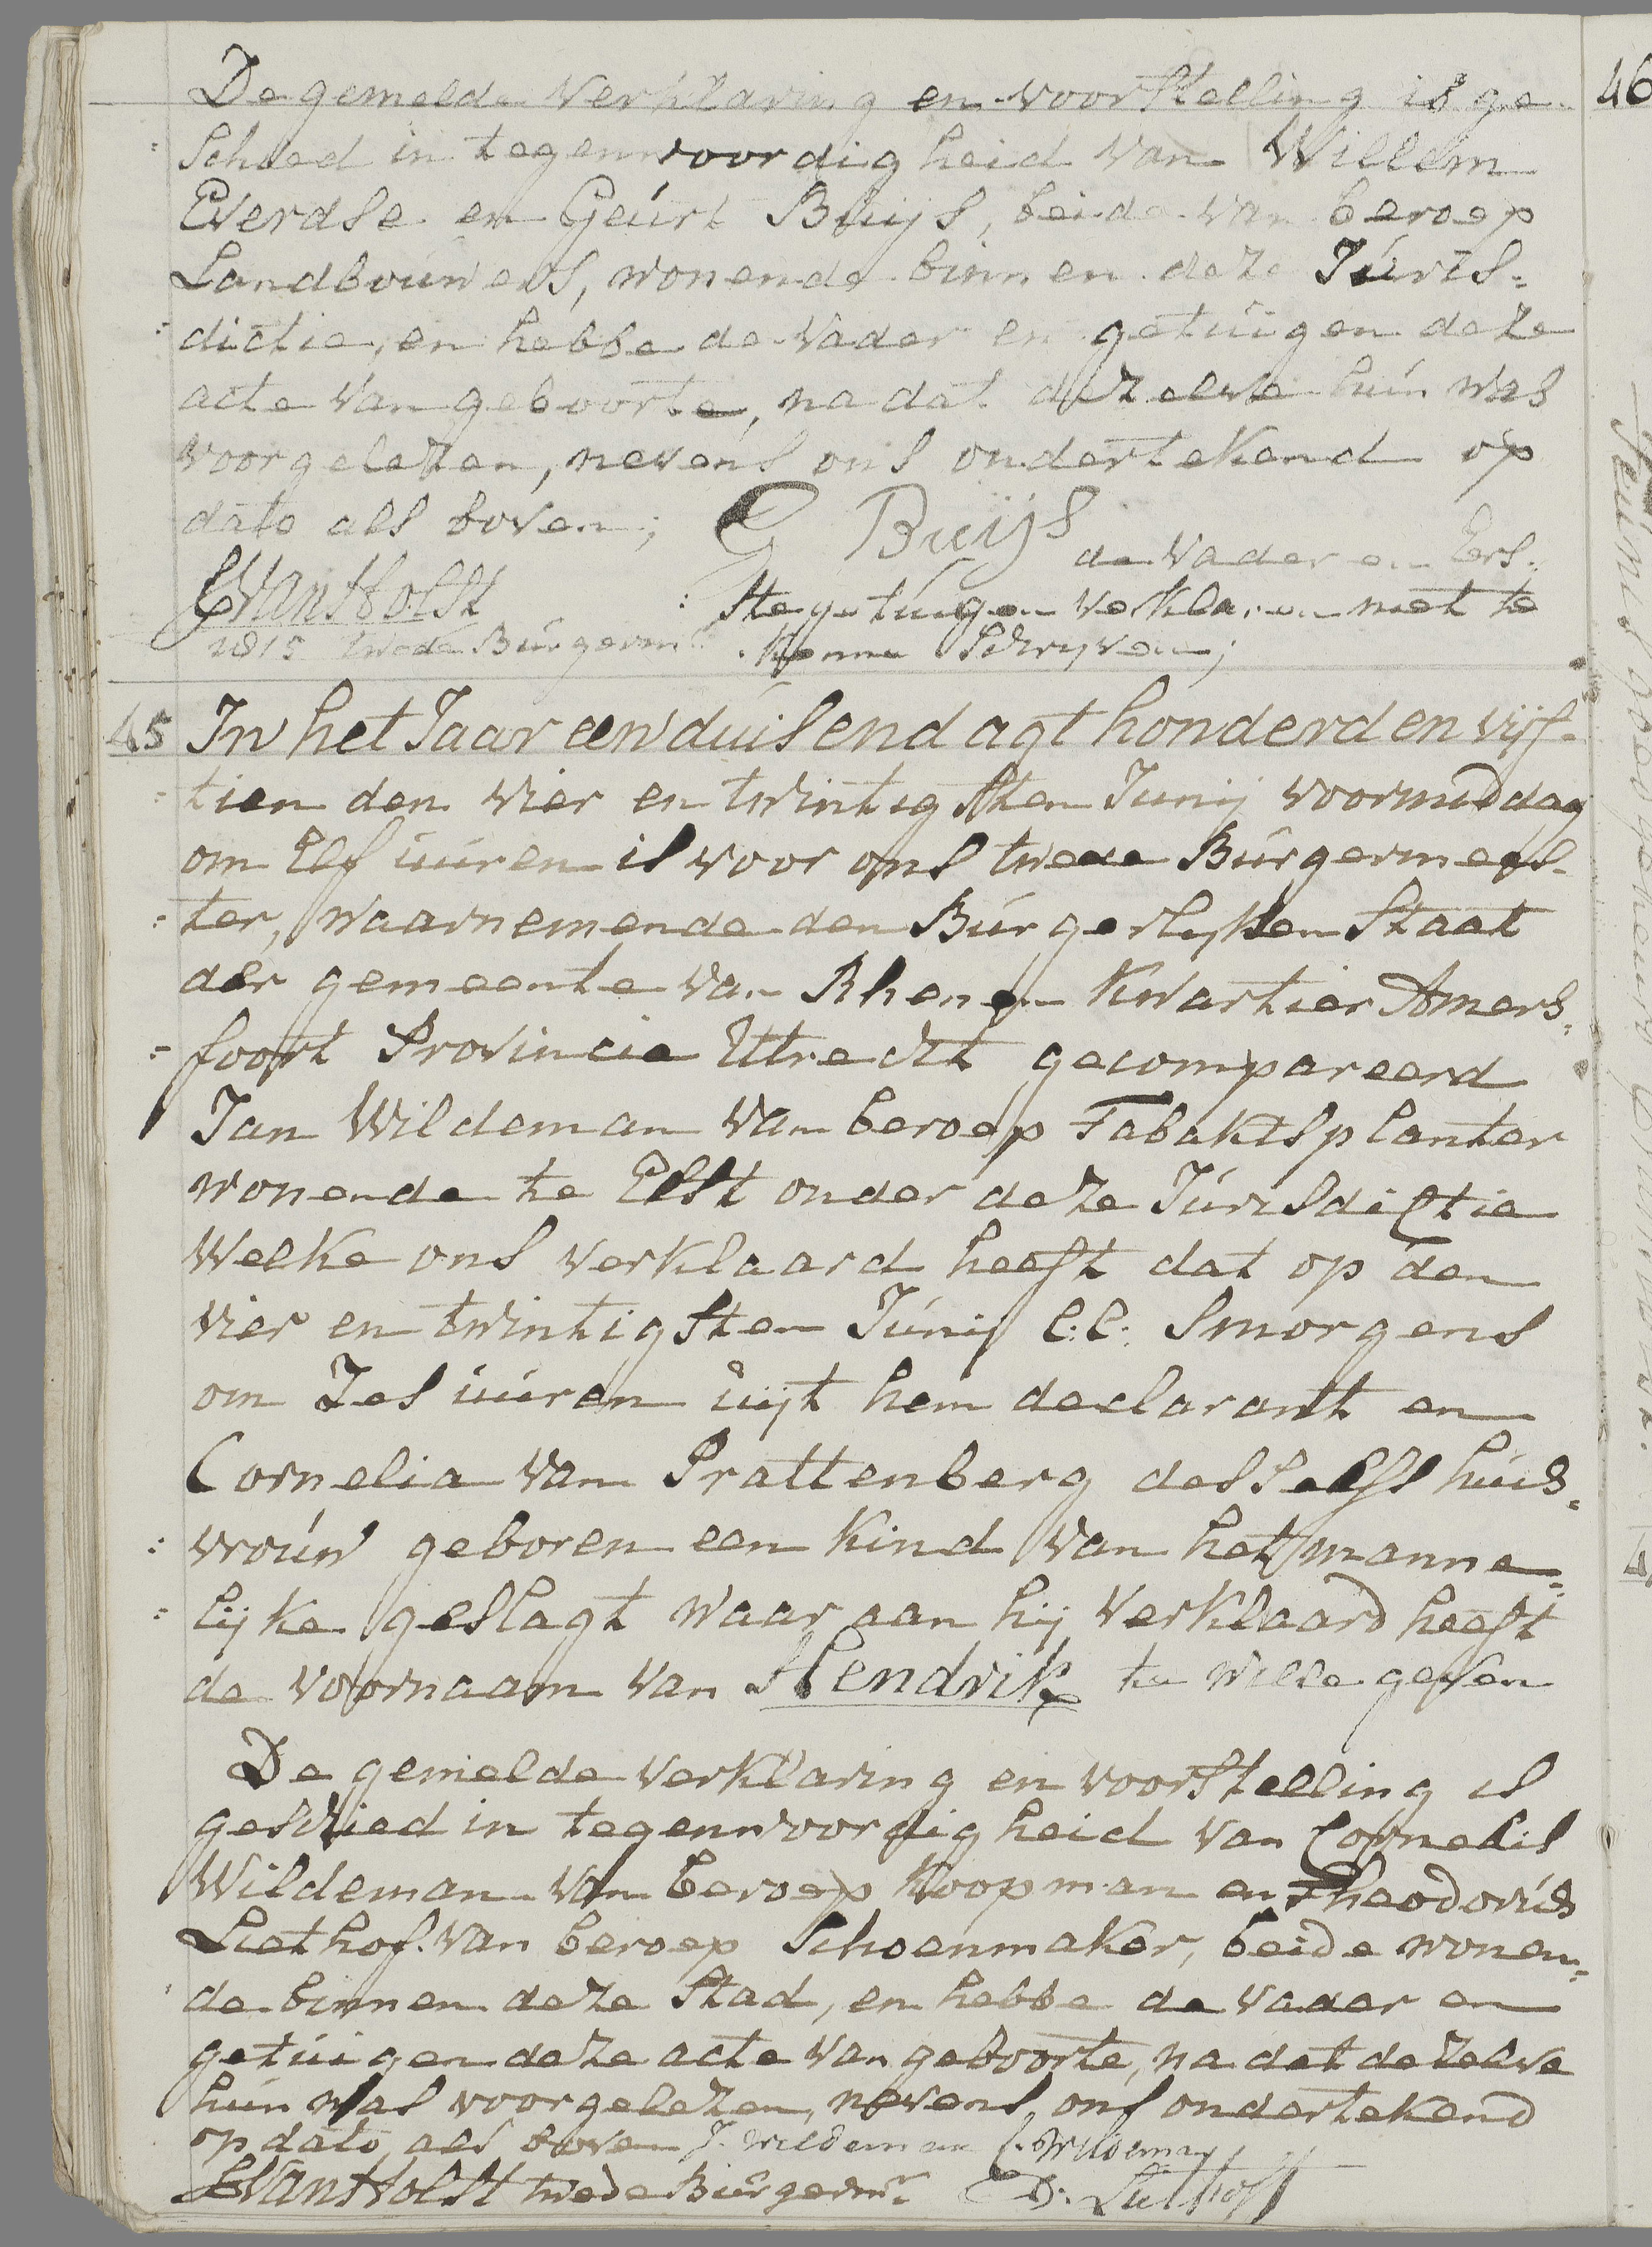 De gemelde verklaring en voorstelling is ge-
: schied in tegenwoordigheid van Willem
Everdse en Geurt Buijs, beide van beroep
Landbouwers, wonende binnen deze Juris=
: dictie, en hebbe de vader en getuigen deze
acte van geboorte, na dat dezelve hun was
voorgelezen, nevens ons ondertekend op
dato als boven;
G Buijs
de vader en Eers-
EvanHolst
: ste getuigen verklaren niet te
1815 twede Burgermr
kenne Schryven;
46
45 In het Jaar een duisend agt honderd en vijf-
: tien den vier en twintigsten Junij voormiddag
om Elf uuren is voor ons twede Burgermees-
: ter, waarnemende den Burgerlyken Staat
der gemeente van Rhenen Kwartier Amers=
= foort Provincie Uttrecht gecompareerd
Jan Wildeman van beroep Tabaktsplanter
wonende te Elst onder deze Jurisdictie
Welke ons verklaard heeft dat op den
vier en twintigsten Junij l:l: Smorgens
om Zes uuren uijt hem declarantt en
Cornelia van Prattenberg desselfs huis=
: vrouw geboren een kind van het manne=
: lijke geslagt waar aan hij verklaard heeft
de voornaam van Hendrik te wille geven
De gemelde verklaring en voorstelling is
geschied in tegenwoordigheid van Cornelis
Wildeman van beroep Koopman en Theodorus
Liethof van beroep Schoenmaker, beide wonen=
de binnen deze Stad, en hebbe de vader en
getuigen deze acte van geboorte, na dat dezelve
hun was voorgelezen, nevens ons ondertekend
op dato als boven J. wildeman C. Wildeman
EVanHolst twede Burgermr D. Liethoff